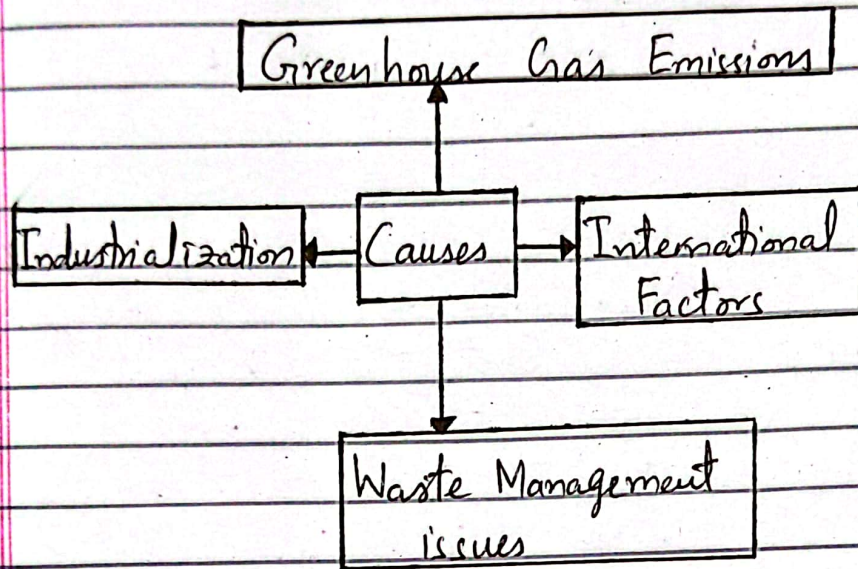 Greenhouse Gas Emissions
Industrialization
Causes
International
Factors
Waste Management
issues